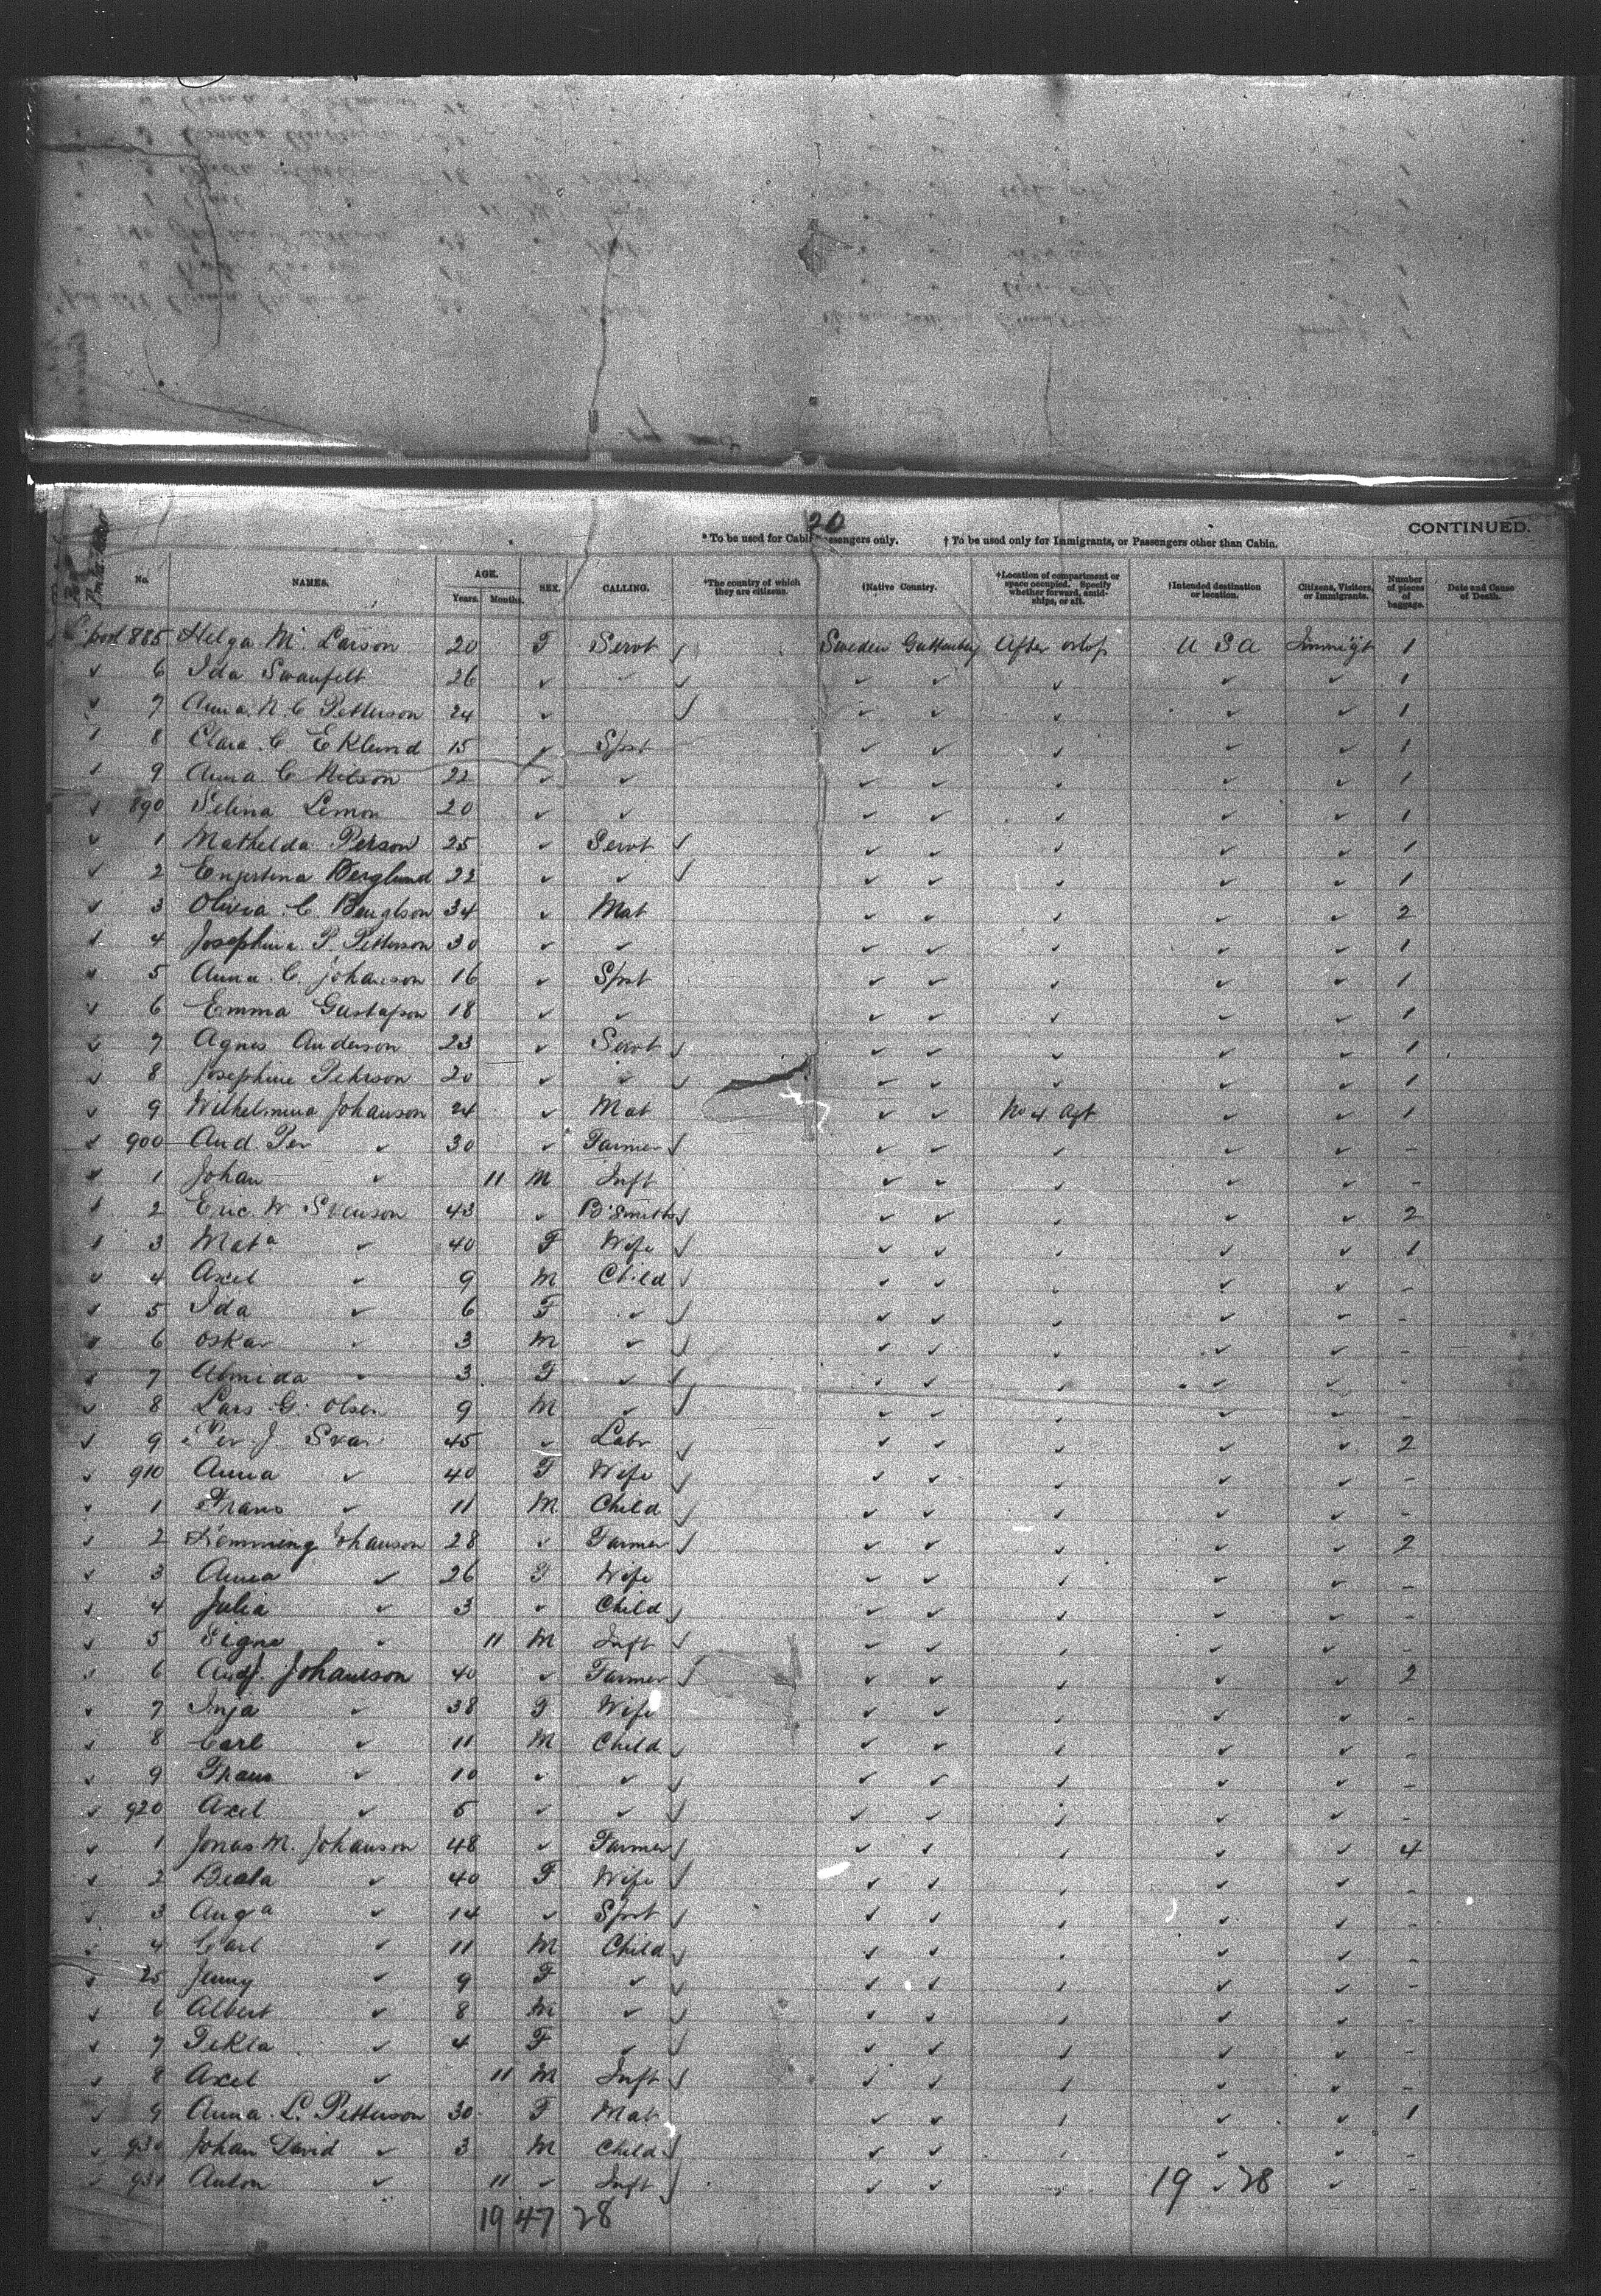 20
CONTINUED.
* To be used for Cabin Passengers only. † To be used only for Immigrants, or Passengers other than Cabin.
No. NAMES. AGE. Years. Months. SEX. CALLING. *The country of which they are citizens. †Native Country. †Location of compartment or space occupied. Specify whether forward, amidships, or aft. †Intended destination or location. Citizens, Visitors, or Immigrants. Number of pieces of baggage. Date and Cause of Death.
885 Helga M. Larson 20 F Servt Sweden After orlop U S A Immigt 1
✓ 6 Ida Swanfelt 26 ✓ ✓ ✓ ✓ ✓ ✓ ✓ 1
✓ 7 Anna N. C Petterson 24 ✓ ✓ ✓ ✓ ✓ ✓ 1
✓ 8 Clara C Eklund 15 ✓ Spst ✓ ✓ ✓ ✓ ✓ 1
✓ 9 Anna C Nilson 22 ✓ ✓ ✓ ✓ ✓ ✓ ✓ 1
✓ 890 Selina Lemon 20 ✓ ✓ ✓ ✓ ✓ ✓ ✓ 1
✓ 1 Mathelda Person 25 ✓ Servt ✓ ✓ ✓ ✓ ✓ 1
✓ 2 Berglund 22 ✓ ✓ ✓ ✓ ✓ ✓ ✓ 1
✓ 3 Olivia C Bengtson 34 ✓ Mat ✓ ✓ ✓ ✓ ✓ 2
✓ 4 Josephina P. Petterson 30 ✓ ✓ ✓ ✓ ✓ ✓ ✓ 1
✓ 5 Anna C. Johanson 16 ✓ Spst ✓ ✓ ✓ ✓ ✓ 1
✓ 6 Emma Gustafson 18 ✓ ✓ ✓ ✓ ✓ ✓ ✓ 1
✓ 7 Agnes Anderson 23 ✓ Servt ✓ ✓ ✓ ✓ ✓ 1
✓ 8 Josephine Pehrson 20 ✓ ✓ ✓ ✓ ✓ ✓ ✓ 1
✓ 9 Wilhelmina Johanson 24 ✓ Mat ✓ ✓ No 4 Aft ✓ ✓ 1
✓ 900 And. Per ✓ 30 ✓ Farmer ✓ ✓ ✓ ✓ ✓ -
✓ 1 Johan ✓ 11 M Inft ✓ ✓ ✓ ✓ ✓ -
✓ 2 Eric W Svenson 43 ✓ B'Smith ✓ ✓ ✓ ✓ ✓ 2
✓ 3 Mata ✓ 40 F Wife ✓ ✓ ✓ ✓ ✓ 1
✓ 4 Axel ✓ 9 M Child ✓ ✓ ✓ ✓ ✓ -
✓ 5 Ida ✓ 6 F ✓ ✓ ✓ ✓ ✓ ✓ -
✓ 6 Oskar ✓ 3 M ✓ ✓ ✓ ✓ ✓ ✓ -
✓ 7 Almida ✓ 3 F ✓ ✓ ✓ ✓ ✓ ✓ -
✓ 8 Lars G. Olsen 9 M ✓ ✓ ✓ ✓ ✓ ✓ -
✓ 9 Per J Svar 45 ✓ Labr ✓ ✓ ✓ ✓ ✓ 2
✓ 910 Anna ✓ 40 F Wife ✓ ✓ ✓ ✓ ✓ -
✓ 1 Frans ✓ 11 M Child ✓ ✓ ✓ ✓ ✓ -
✓ 2 Johanson 28 ✓ Farmer ✓ ✓ ✓ ✓ ✓ 2
✓ 3 Anna ✓ 26 F Wife ✓ ✓ ✓ ✓ ✓ -
✓ 4 Julia ✓ 3 ✓ Child ✓ ✓ ✓ ✓ ✓ -
✓ 5 Signe ✓ 11 M Inft ✓ ✓ ✓ ✓ ✓ -
✓ 6 And J. Johanson 40 ✓ Farmer ✓ ✓ ✓ ✓ ✓ 2
✓ 7 Inja ✓ 38 F Wife ✓ ✓ ✓ ✓ ✓ -
✓ 8 Carl ✓ 11 M Child ✓ ✓ ✓ ✓ ✓ -
✓ 9 Frans ✓ 10 ✓ ✓ ✓ ✓ ✓ ✓ ✓ -
✓ 920 Axel ✓ 5 ✓ ✓ ✓ ✓ ✓ ✓ ✓ -
✓ 1 Jonas M. Johanson 48 ✓ Farmer ✓ ✓ ✓ ✓ ✓ 4
✓ 2 Beata ✓ 40 F Wife ✓ ✓ ✓ ✓ ✓ -
✓ 3 Auga ✓ 14 ✓ Spst ✓ ✓ ✓ ✓ ✓ -
✓ 4 Carl ✓ 11 M Child ✓ ✓ ✓ ✓ ✓ -
✓ 25 Jenny ✓ 9 F ✓ ✓ ✓ ✓ ✓ ✓ -
✓ 6 Albert ✓ 8 M ✓ ✓ ✓ ✓ ✓ ✓ -
✓ 7 Tekla ✓ 4 F ✓ ✓ ✓ ✓ ✓ ✓ -
✓ 8 Axel ✓ 11 M Inft ✓ ✓ ✓ ✓ ✓ -
✓ 9 Anna L. Petterson 30 F Mat ✓ ✓ ✓ ✓ ✓ 1
✓ 930 Johan David ✓ 3 M Child ✓ ✓ ✓ ✓ ✓ -
✓ 931 Anton ✓ 11 ✓ Inft ✓ ✓ ✓ 19 ✓ 28 ✓ -
19 47 28